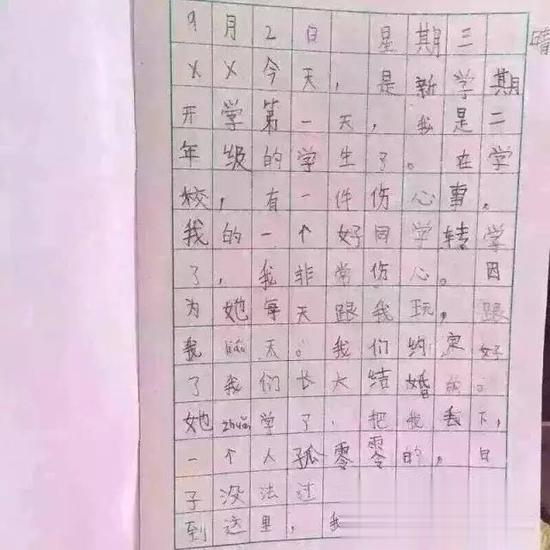 9月2日 星期三 晴
××今天，是新学期
开学第一天，我是二
年级的学生了。在学
校，有一件伤心事。
我的一个好同学转学
了，我非常伤心。因
为她每天跟我玩，跟
我liáo天。我们约定好
了我们长大结婚的。
她zhuǎn学了，把我丢下，
一个人孤零零的。日
子没法过
到这里，我